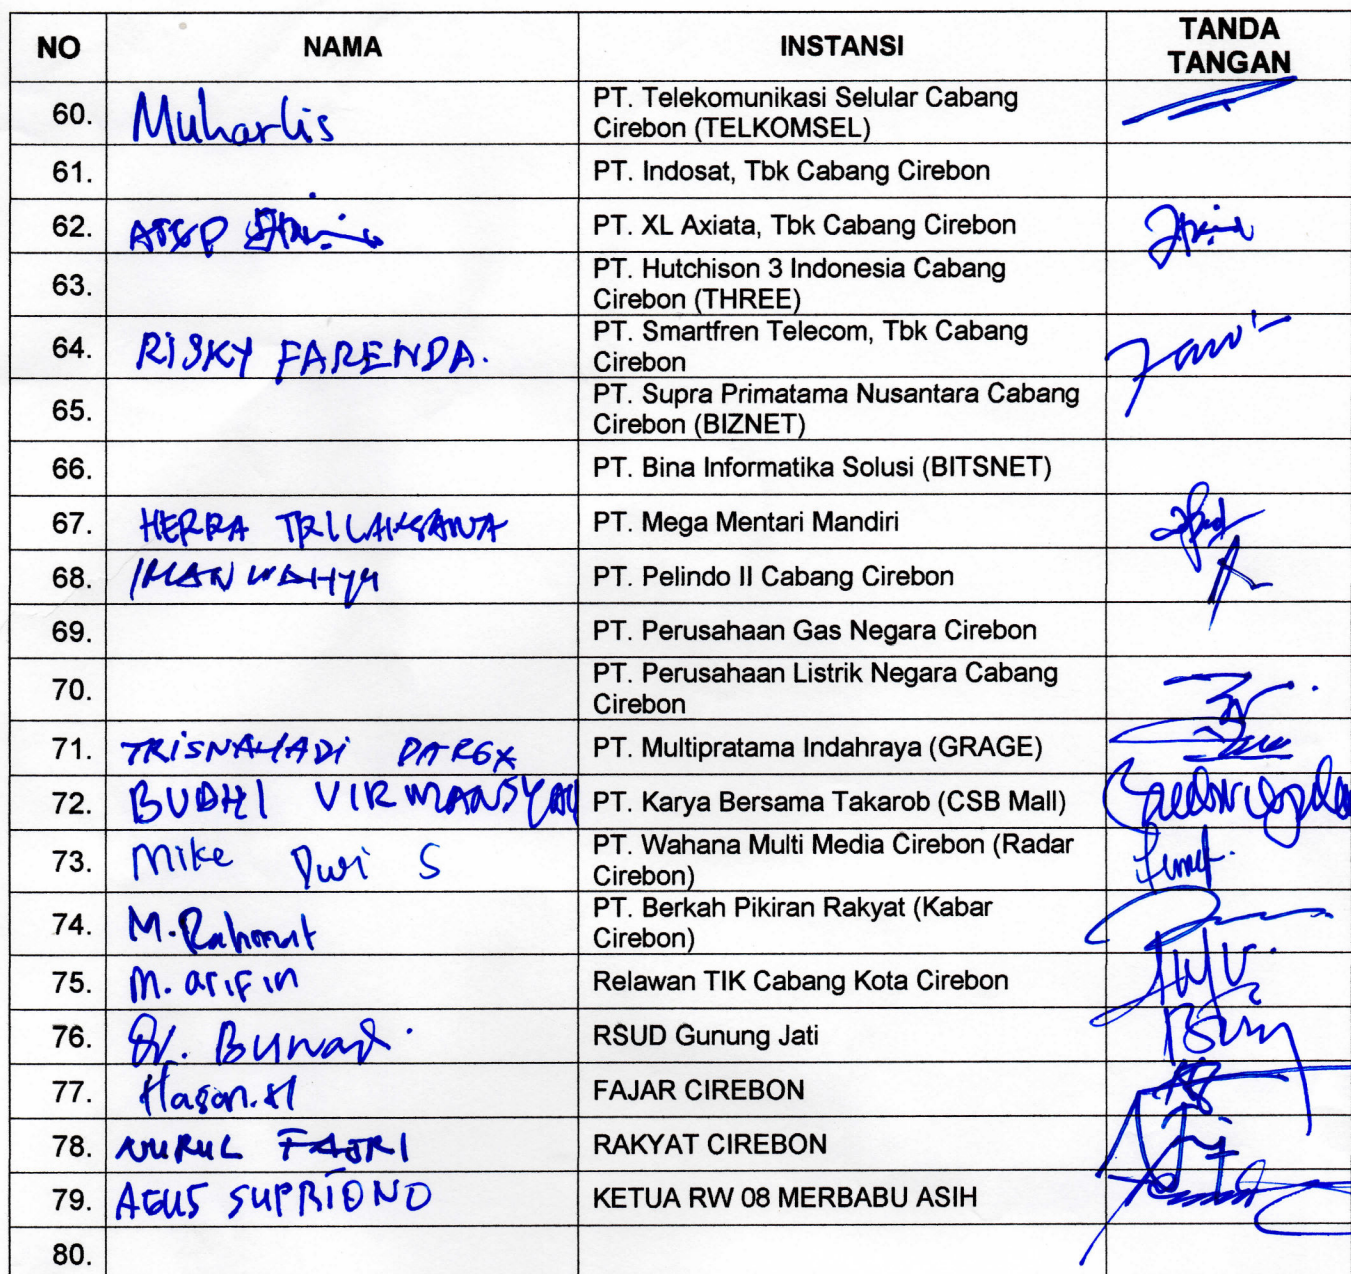 NO NAMA INSTANSI TANDA
TANGAN
60. Muharlis PT. Telekomunikasi Selular Cabang
Cirebon (TELKOMSEL)
61. PT. Indosat, Tbk Cabang Cirebon
62. PT. XL Axiata, Tbk Cabang Cirebon
63. PT. Hutchison 3 Indonesia Cabang
Cirebon (THREE)
64. RISKY FARENDA. PT. Smartfren Telecom, Tbk Cabang
Cirebon
65. PT. Supra Primatama Nusantara Cabang
Cirebon (BIZNET)
66. PT. Bina Informatika Solusi (BITSNET)
67. HERRA TRILAKSANA PT. Mega Mentari Mandiri
68. IMAN WAHYU PT. Pelindo II Cabang Cirebon
69. PT. Perusahaan Gas Negara Cirebon
70. PT. Perusahaan Listrik Negara Cabang
Cirebon
71. TRISNAHADI PT. Multipratama Indahraya (GRAGE)
72. BUDHI VIRMANSYAH PT. Karya Bersama Takarob (CSB Mall)
73. Mike Dwi S PT. Wahana Multi Media Cirebon (Radar
Cirebon)
74. M. Rahmat PT. Berkah Pikiran Rakyat (Kabar
Cirebon)
75. M. arifin Relawan TIK Cabang Kota Cirebon
76. RSUD Gunung Jati
77. Hasan. FAJAR CIREBON
78. NURUL FAJRI RAKYAT CIREBON
79. AGUS SUPRIONO KETUA RW 08 MERBABU ASIH
80.